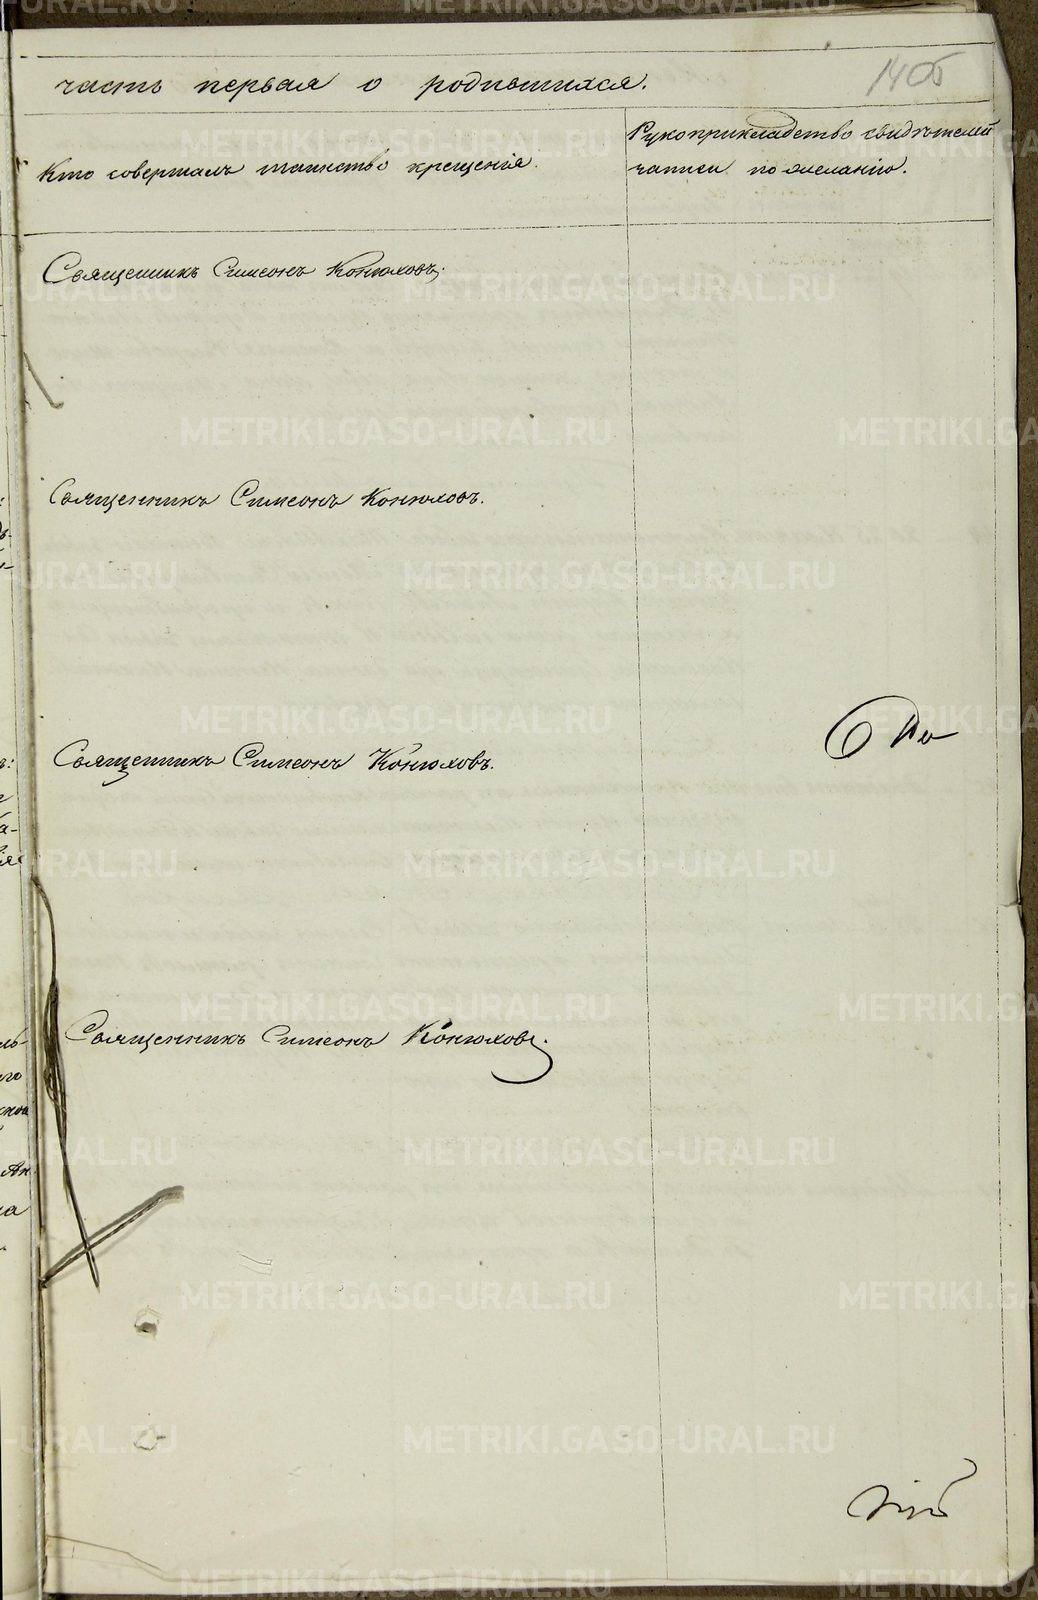 часть первая о родившихся.
1405
Кто совершалъ таинство крещенія.
Рукоприкладство свидѣтелей
записи по желанію.
Священникъ Симеонъ Конюховъ.
Священникъ Симеонъ Конюховъ.
Священникъ Симеонъ Конюховъ.
Священникъ Симеонъ Конюховъ.
METRIKI.GASO-URAL.RU